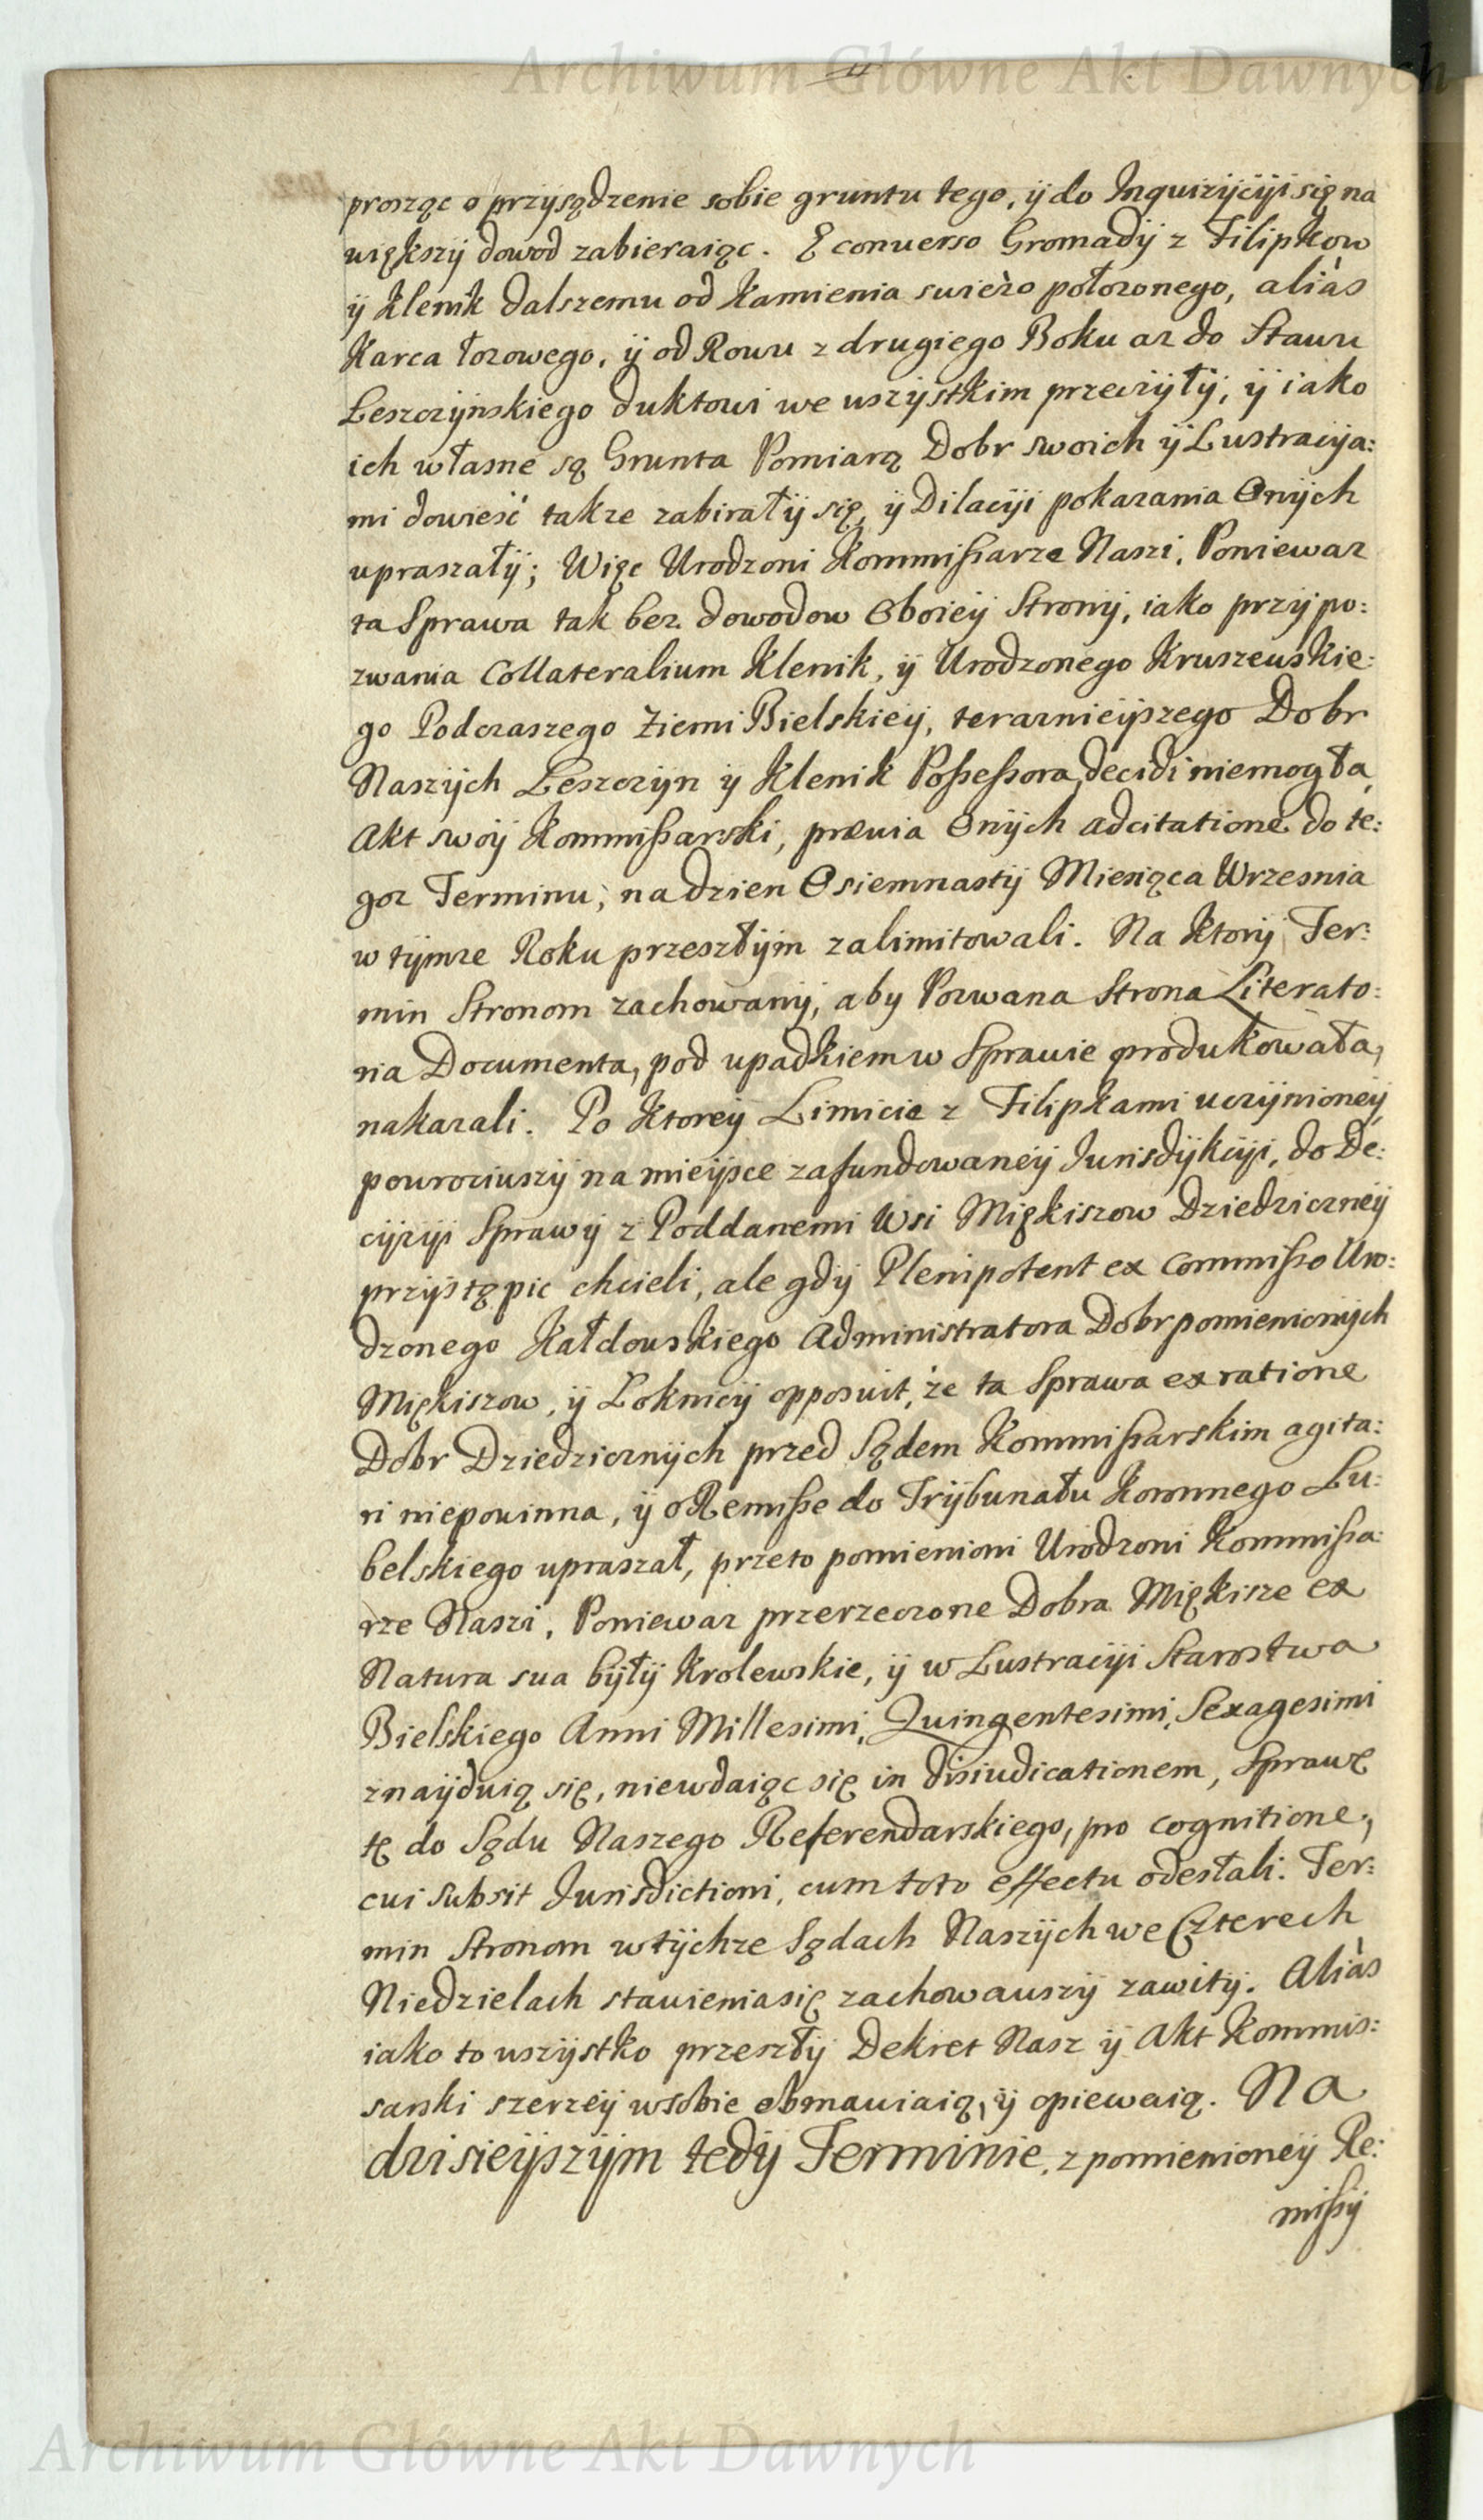 Archiwum Główne Akt Dawnych
prosząc o przysądzenie sobie gruntu tego, ÿ do Inquizÿcÿi się na
większÿ dowod zabieraiąc. E conuerso Gromadÿ z Filipkow
ÿ Klenik dalszemu od Kamienia swieżo położonego, aliàs
Karca łozowego, ÿ od Rowu z drugiego Boku az do Stawu
Leszczÿnskiego duktowi we wszÿstkim przeczÿłÿ, ÿ iako
ich własne są Grunta Pomiarą Dobr swoich ÿ Lustracÿa:
mi dowieść takze zabirałÿ się, ÿ Dilacÿi pokazania Onÿch
upraszałÿ; Więc Urodzoni Kommissarze Naszi, Poniewaz
ta Sprawa tak bez dowodow Oboieÿ Stronÿ, iako przÿpo:
zwania Collateralium Klenik, ÿ Urodzonego Kruszewskie:
go Podczaszego Ziemi Bielskieÿ, terazniejszego Dobr
Naszÿch Leszczÿn ÿ Klenik Possessora, decidi niemogła,
Akt swoÿ Kommissarski, prævia Onÿch adcitatione do te:
goz Terminu, na dzien Osiemnastÿ Miesiąca Wrzesnia
w tÿmze Roku przeszłÿm zalimitowali. Na Ktorÿ Ter:
min Stronom zachowanÿ, aby Pozwana Strona Literato:
ria Documenta, pod upadkiem w Sprawie produkowała,
nakazali. Po Ktoreÿ Limicie z Filipkami uczÿnioneÿ
powrociwszÿ na mieÿsce zafundowaneÿ Jurisdÿkcÿi, do De:
cÿzÿi Sprawÿ z Poddanemi Wsi Miękiszow Dziedziczneÿ
przÿstąpic chcieli, ale gdÿ Plenipotent ex commisso Uro:
dzonego Kałdowskiego Administratora Dobr pomienionÿch
Miękiszow, ÿ Loknicÿ opposuit, że ta Sprawa ex ratione
Dobr Dziedzicznÿch przed Sądem Kommissarskim agita:
ri niepowinna, ÿ o Remisse do Trÿbunału Koronnego Lu:
belskiego upraszał, przeto pomienioni Urodzoni Kommissa:
rze Naszi, Poniewaz przerzeczone Dobra Miękisze ex
Natura sua bÿłÿ Krolewskie, ÿ w Lustracÿi Starostwa
Bielskiego Anni Millesimi, Quingentesimi, Sexagesimi
znaÿduią się, niewdaiąc się in disiudicationem, Sprawę
tę do Sądu Naszego Referendarskiego, pro cognitione,
cui subsit Jurisdictioni, cum toto effectu odesłali. Ter:
min Stronom w tÿchze Sądach Naszÿch we Czterech
Niedzielach stawienia się zachowawszÿ zawitÿ. Aliàs
iako to wszÿstko przeszłÿ Dekret Nasz ÿ Akt Kommis:
sarski szerzeÿ w sobie obmawiaią, ÿ opiewaią. Na
dzisieÿszÿm tedÿ Terminie, z pomienioneÿ Re:
missÿ
Archiwum Główne Akt Dawnych